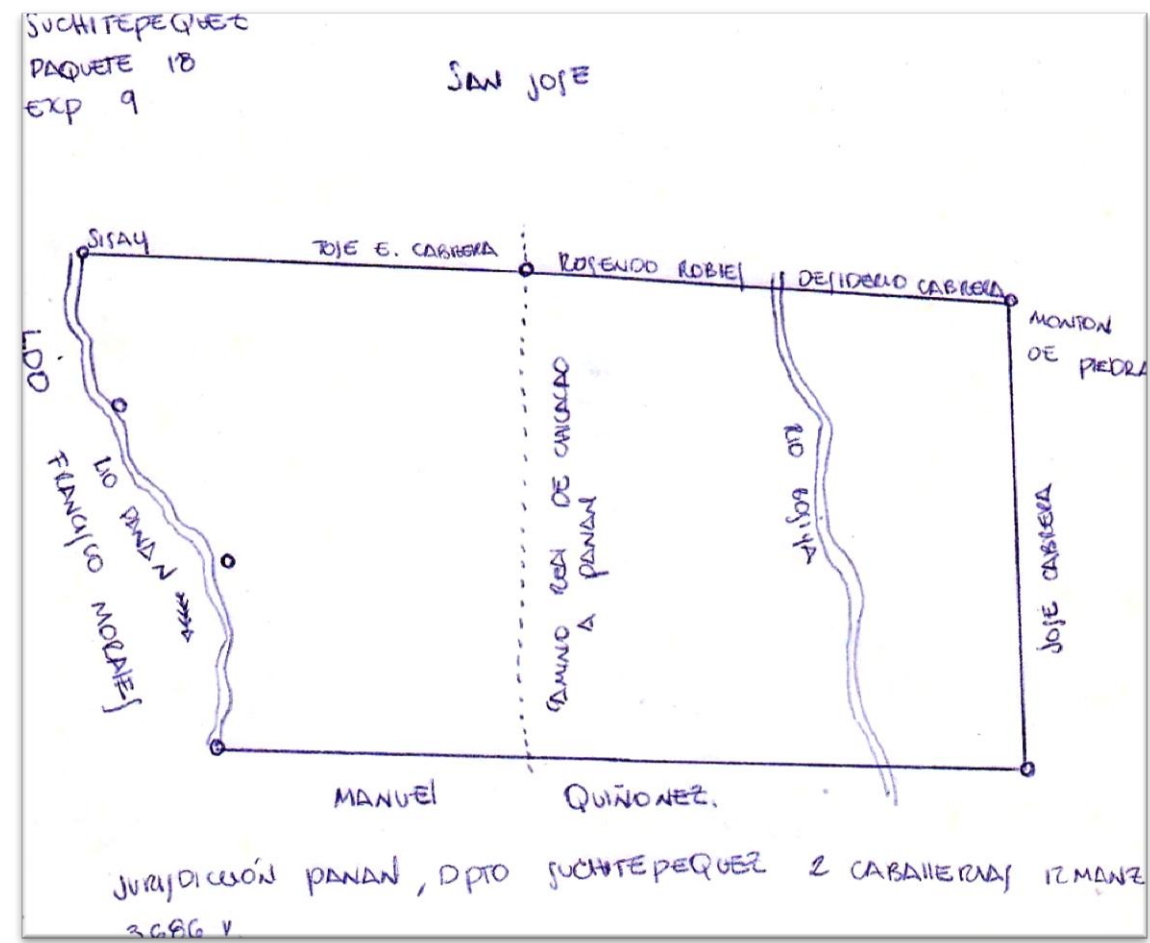 SUCHITEPEQUEZ
PAQUETE 18
EXP 9
SAN JOSE
SISAY
JOSE E. CABRERA
ROSENDO ROBLES
DESIDERIO CABRERA
MONTON
DE PIEDRA
LDO
FRANCISCO MORALES
RIO PANAN
CAMINO REAL DE CHICACAO
A PANAN
RIO
JOSE CABRERA
MANUEL QUIÑONEZ.
JURISDICCIÓN PANAN, DPTO SUCHITEPEQUEZ 2 CABALLERIAS 12 MANZ
3686 V